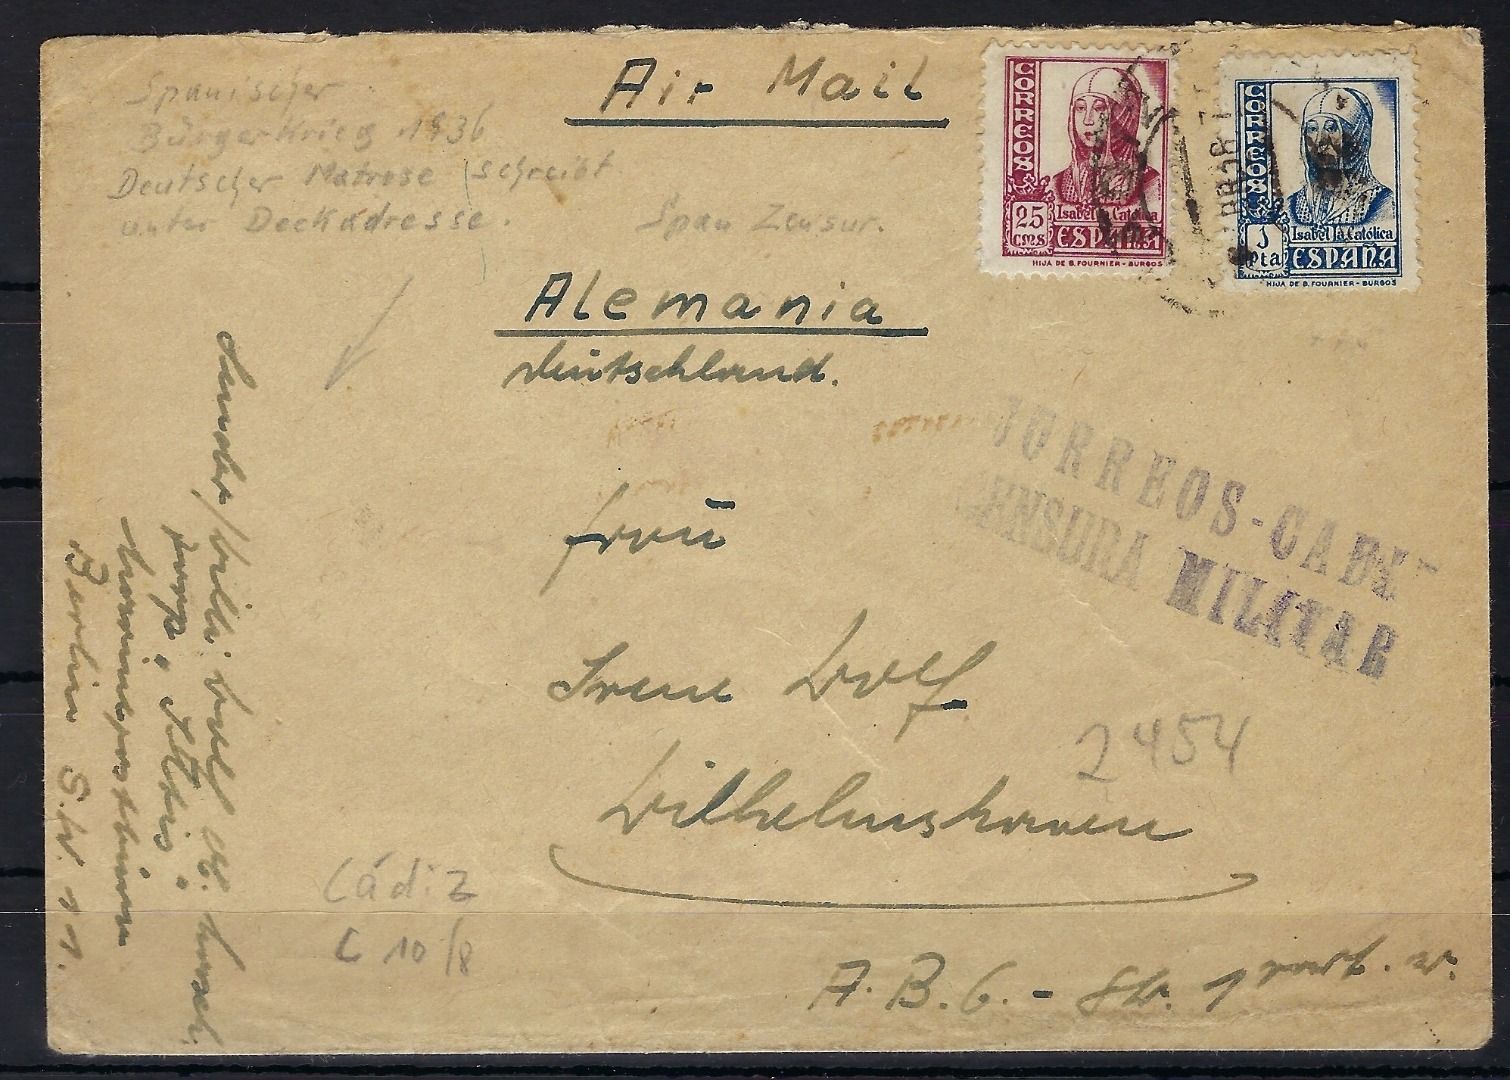 Air Mail
Spanischer
Bürgerkrieg 1936
Deutscher Matrose schreibt
unter Deckadresse.
Span Zensur.
CORREOS
25
cms
Isabel la Católica
ESPAÑA
HIJA DE B. FOURNIER - BURGOS
CORREOS
1
Pta
Isabel la Católica
ESPAÑA
HIJA DE B. FOURNIER - BURGOS
Alemania
Deutschland.
CORREOS-CADI
CENSURA MILITAR
Frau
Irene Wolf
2454
Wilhelmshaven
A.B.C. - Str.
Cádiz
C 10/8
Willi Wolf
Marinepostbüro
Berlin S.W. 11.